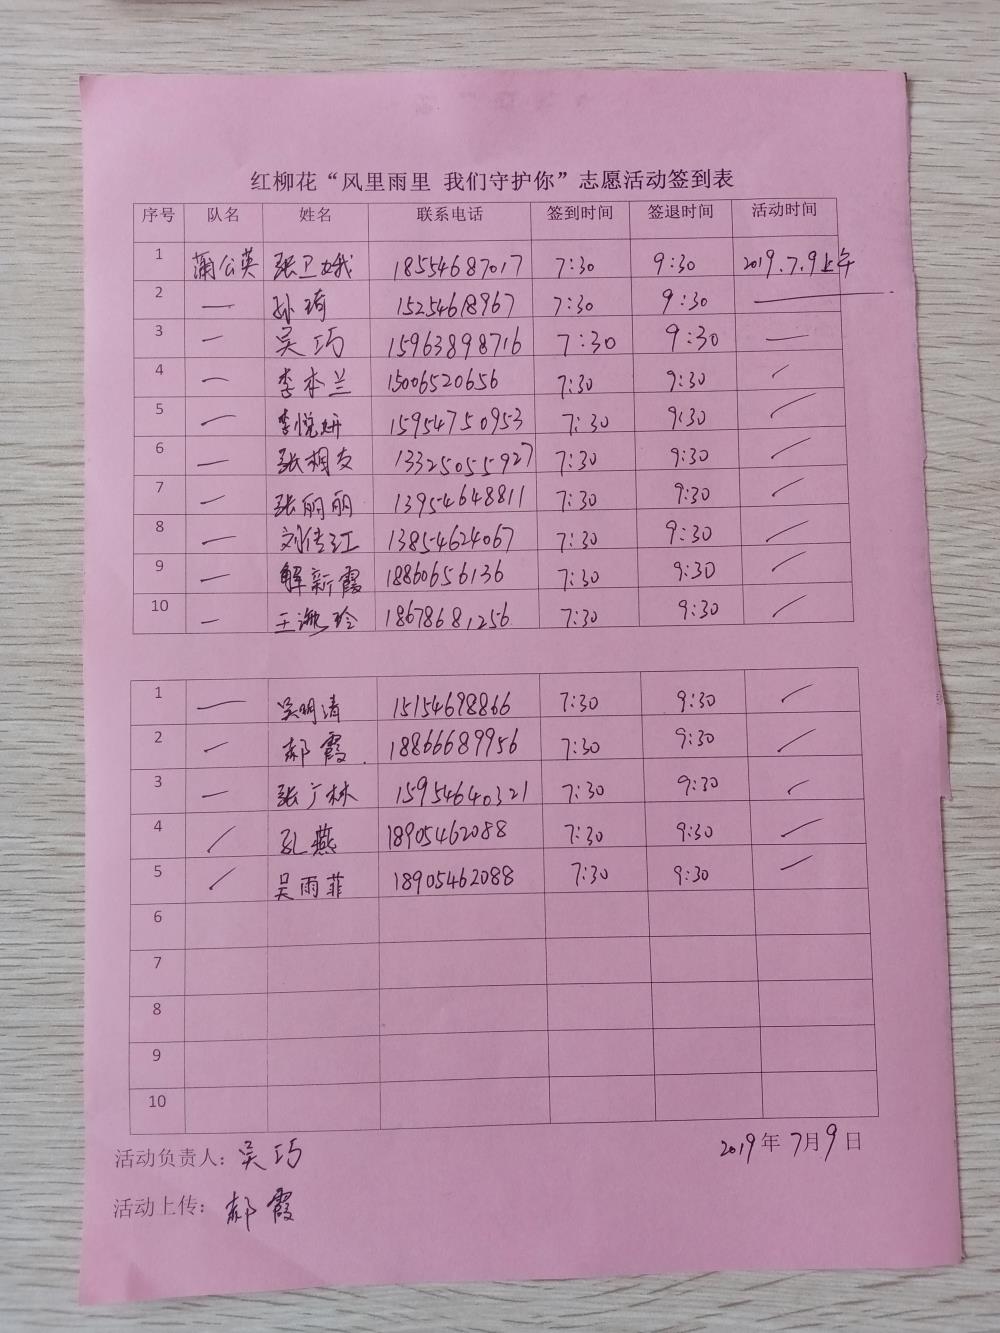 红柳花“风里雨里 我们守护你”志愿活动签到表
序号 队名 姓名 联系电话 签到时间 签退时间 活动时间
1 蒲公英 张卫娥 18554687017 7:30 9:30 2019.7.9上午
2 — 孙琦 15254618967 7:30 9:30 —
3 — 吴巧 15963898716 7:30 9:30 —
4 — 李本兰 15006520656 7:30 9:30 /
5 — 李悦妍 15954750953 7:30 9:30 /
6 — 张相友 13325055927 7:30 9:30 /
7 — 张丽丽 13954648811 7:30 9:30 /
8 — 刘传江 13854624067 7:30 9:30 /
9 — 解新霞 18860656136 7:30 9:30 /
10 — 王玲 18678681256 7:30 9:30 /
1 — 吴明清 15154698866 7:30 9:30 /
2 — 郝霞 18866689956 7:30 9:30 /
3 — 张广林 15954640321 7:30 9:30 /
4 / 孔燕 18905462088 7:30 9:30 /
5 / 吴雨菲 18905462088 7:30 9:30 /
6
7
8
9
10
活动负责人：吴巧 2019年7月9日
活动上传：郝霞